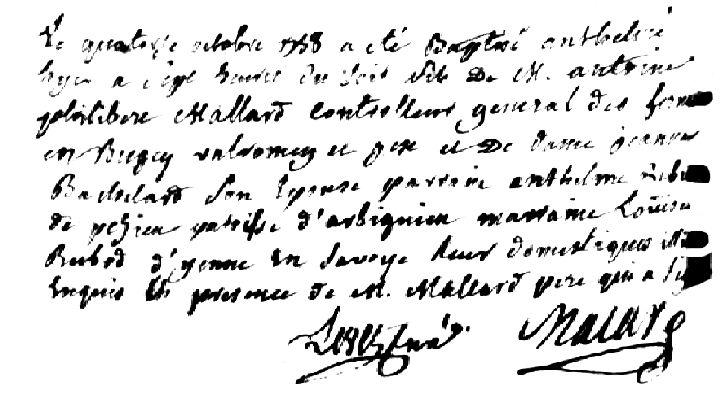 Le quatorse octobre 1758 a été Baptisé anthelme
hyer a sept heures du soir fils De M. antoine
philibere Mallard controlleur general des fermes
en Bugey valromey et gex et De dame jeanne
Bachelard son Epouse parrain anthelme
de peyrieu patoisse d'arbignieu marraine Louise
Rubod d'yenne En Savoye leurs domestiques
Enquis En presence de M. Mallard pere qui a
Malard